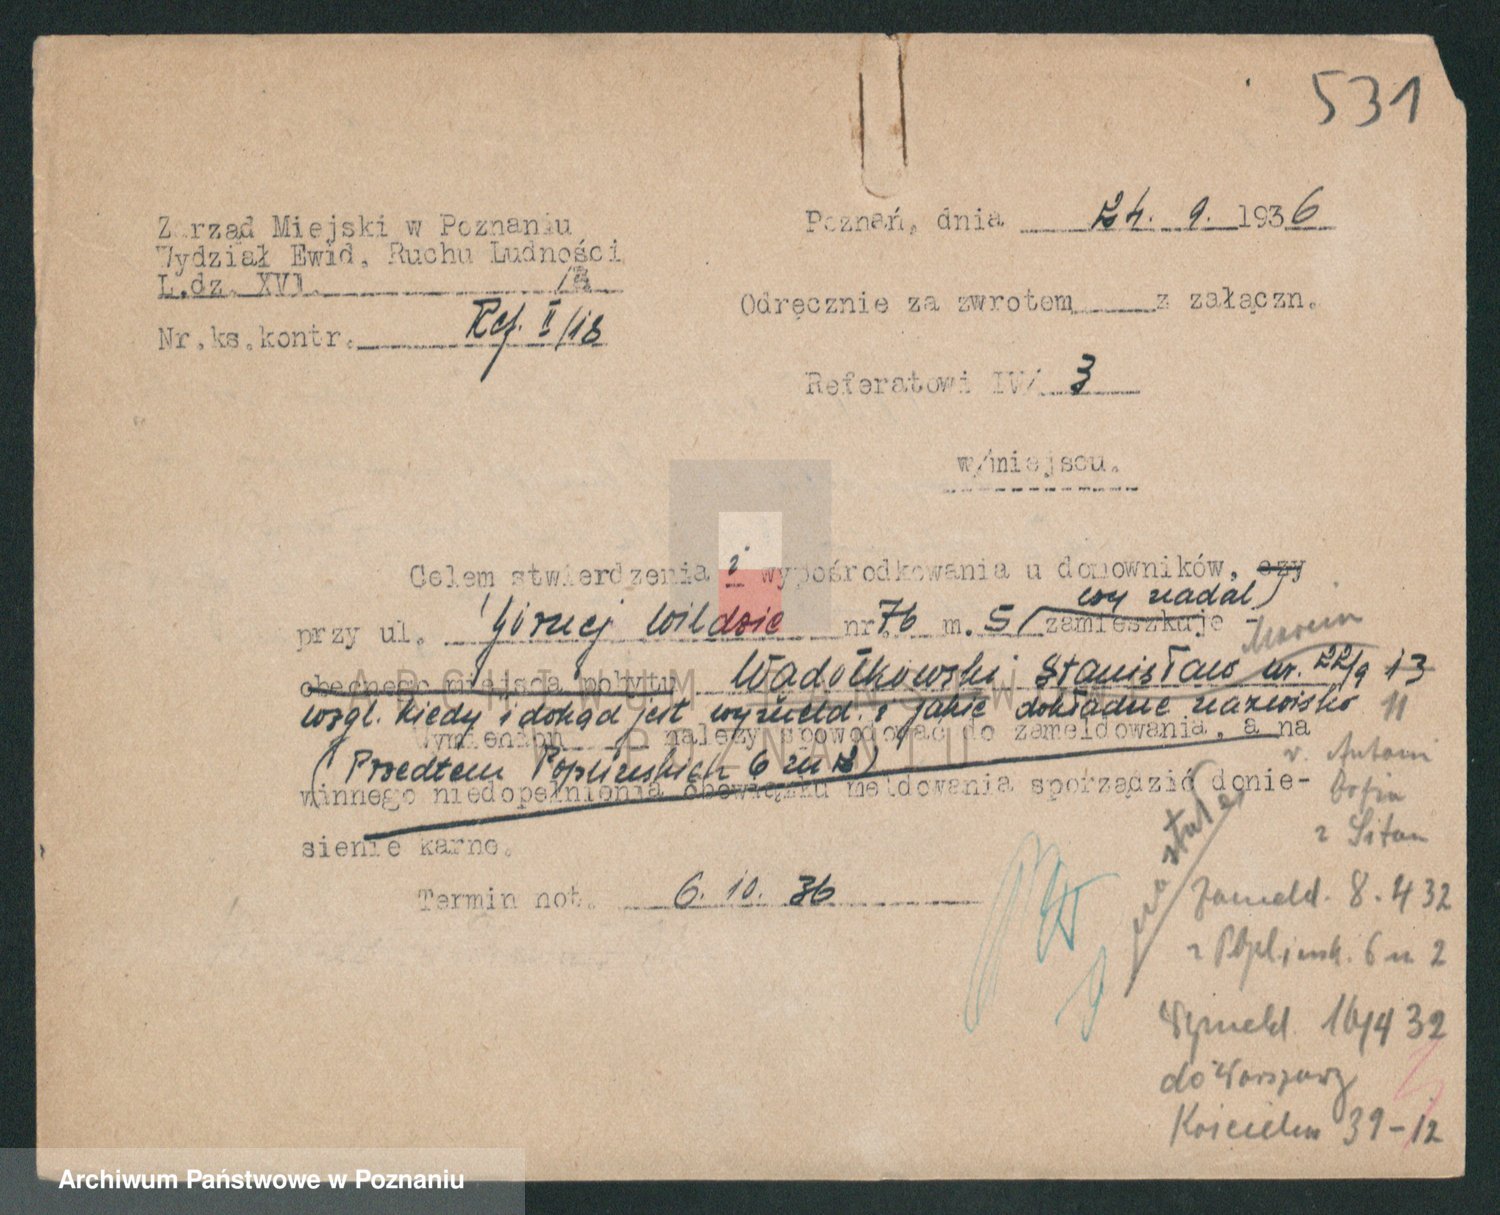 531
Zarząd Miejski w Poznaniu
Wydział Ewid. Ruchu Ludności
L.dz. XVI. /B
Nr.ks.kontr. Ref. II/18
Poznań, dnia 24. 9. 1936
Odręcznie za zwrotem z załączn.
Referatowi IV/ 3
w/miejscu.
Celem stwierdzenia i wypośrodkowania u domowników, czy
czy nadal)
przy ul. Górnej Wildzie nr. 76 m. 5 (zamieszkuje -
Marcin
obecnego miejsca pobytu Wadołkowski Stanisław ur. 22/9 13
wzgl. kiedy i dokąd jest wymeld. i jakie dokładne nazwisko 11
Wymienion należy spowodować do zameldowania, a na
(Przedtem Poplińskich 6 m 2)
winnego niedopełnienia obowiązku meldowania sporządzić donie-
sienie karne.
Termin not. 6. 10. 36
r. Antoni
Zofia
z Sitan
Zameld. 8. 4 32
z Poplińsk. 6 m 2
Wymeld. 16/4 32
do Warszawy
Kościelna 39-12
ARCHIWUM PAŃSTWOWE
W POZNANIU
Archiwum Państwowe w Poznaniu